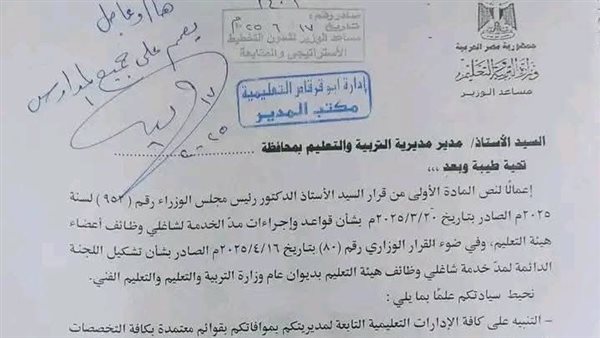 هام وعاجل
يعمم على جميع المدارس
صادر رقم:
مساعد الوزير لشئون التخطيط
الاستراتيجي والمتابعة
إدارة ابوقرقاص التعليمية
مكتب المدير
جمهورية مصر العربية
وزارة التربية والتعليم
مساعد الوزير
السيد الأستاذ/ مدير مديرية التربية والتعليم بمحافظة ..............
تحية طيبة وبعد ،،،
إعمالًا لنص المادة الأولى من قرار السيد الأستاذ الدكتور رئيس مجلس الوزراء رقم (٩٥٢) لسنة
٢٠٢٥م الصادر بتاريخ ٢٠٢٥/٣/٢٠م بشأن قواعد وإجراءات مدّ الخدمة لشاغلي وظائف أعضاء
هيئة التعليم، وفي ضوء القرار الوزاري رقم (٨٠) بتاريخ ٢٠٢٥/٤/١٦م الصادر بشأن تشكيل اللجنة
الدائمة لمدّ خدمة شاغلي وظائف هيئة التعليم بديوان عام وزارة التربية والتعليم والتعليم الفني.
نحيط سيادتكم علمًا بما يلي:
- التنبيه على كافة الإدارات التعليمية التابعة لمديريتكم بموافاتكم بقوائم معتمدة بكافة التخصصات